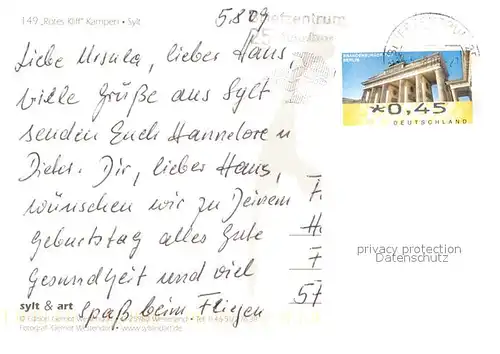 149 „Rotes Kliff" Kampen • Sylt
5.8.09
Briefzentrum
25
BRANDENBURGER TOR
BERLIN
*0,45
DEUTSCHLAND
Liebe Ursula, lieber Hans,
viele Grüße aus Sylt
senden Euch Hannelore u
Dieter. Dir, lieber Hans,
wünschen wir zu Deinem
Geburtstag alles Gute
Gesundheit und viel
Spaß beim Fliegen
F
H
F
57
privacy protection
Datenschutz
sylt & art
© Edition Gernot Westendorf • Westerland
Fotograf: Gernot Westendorf • www.syltandart.de